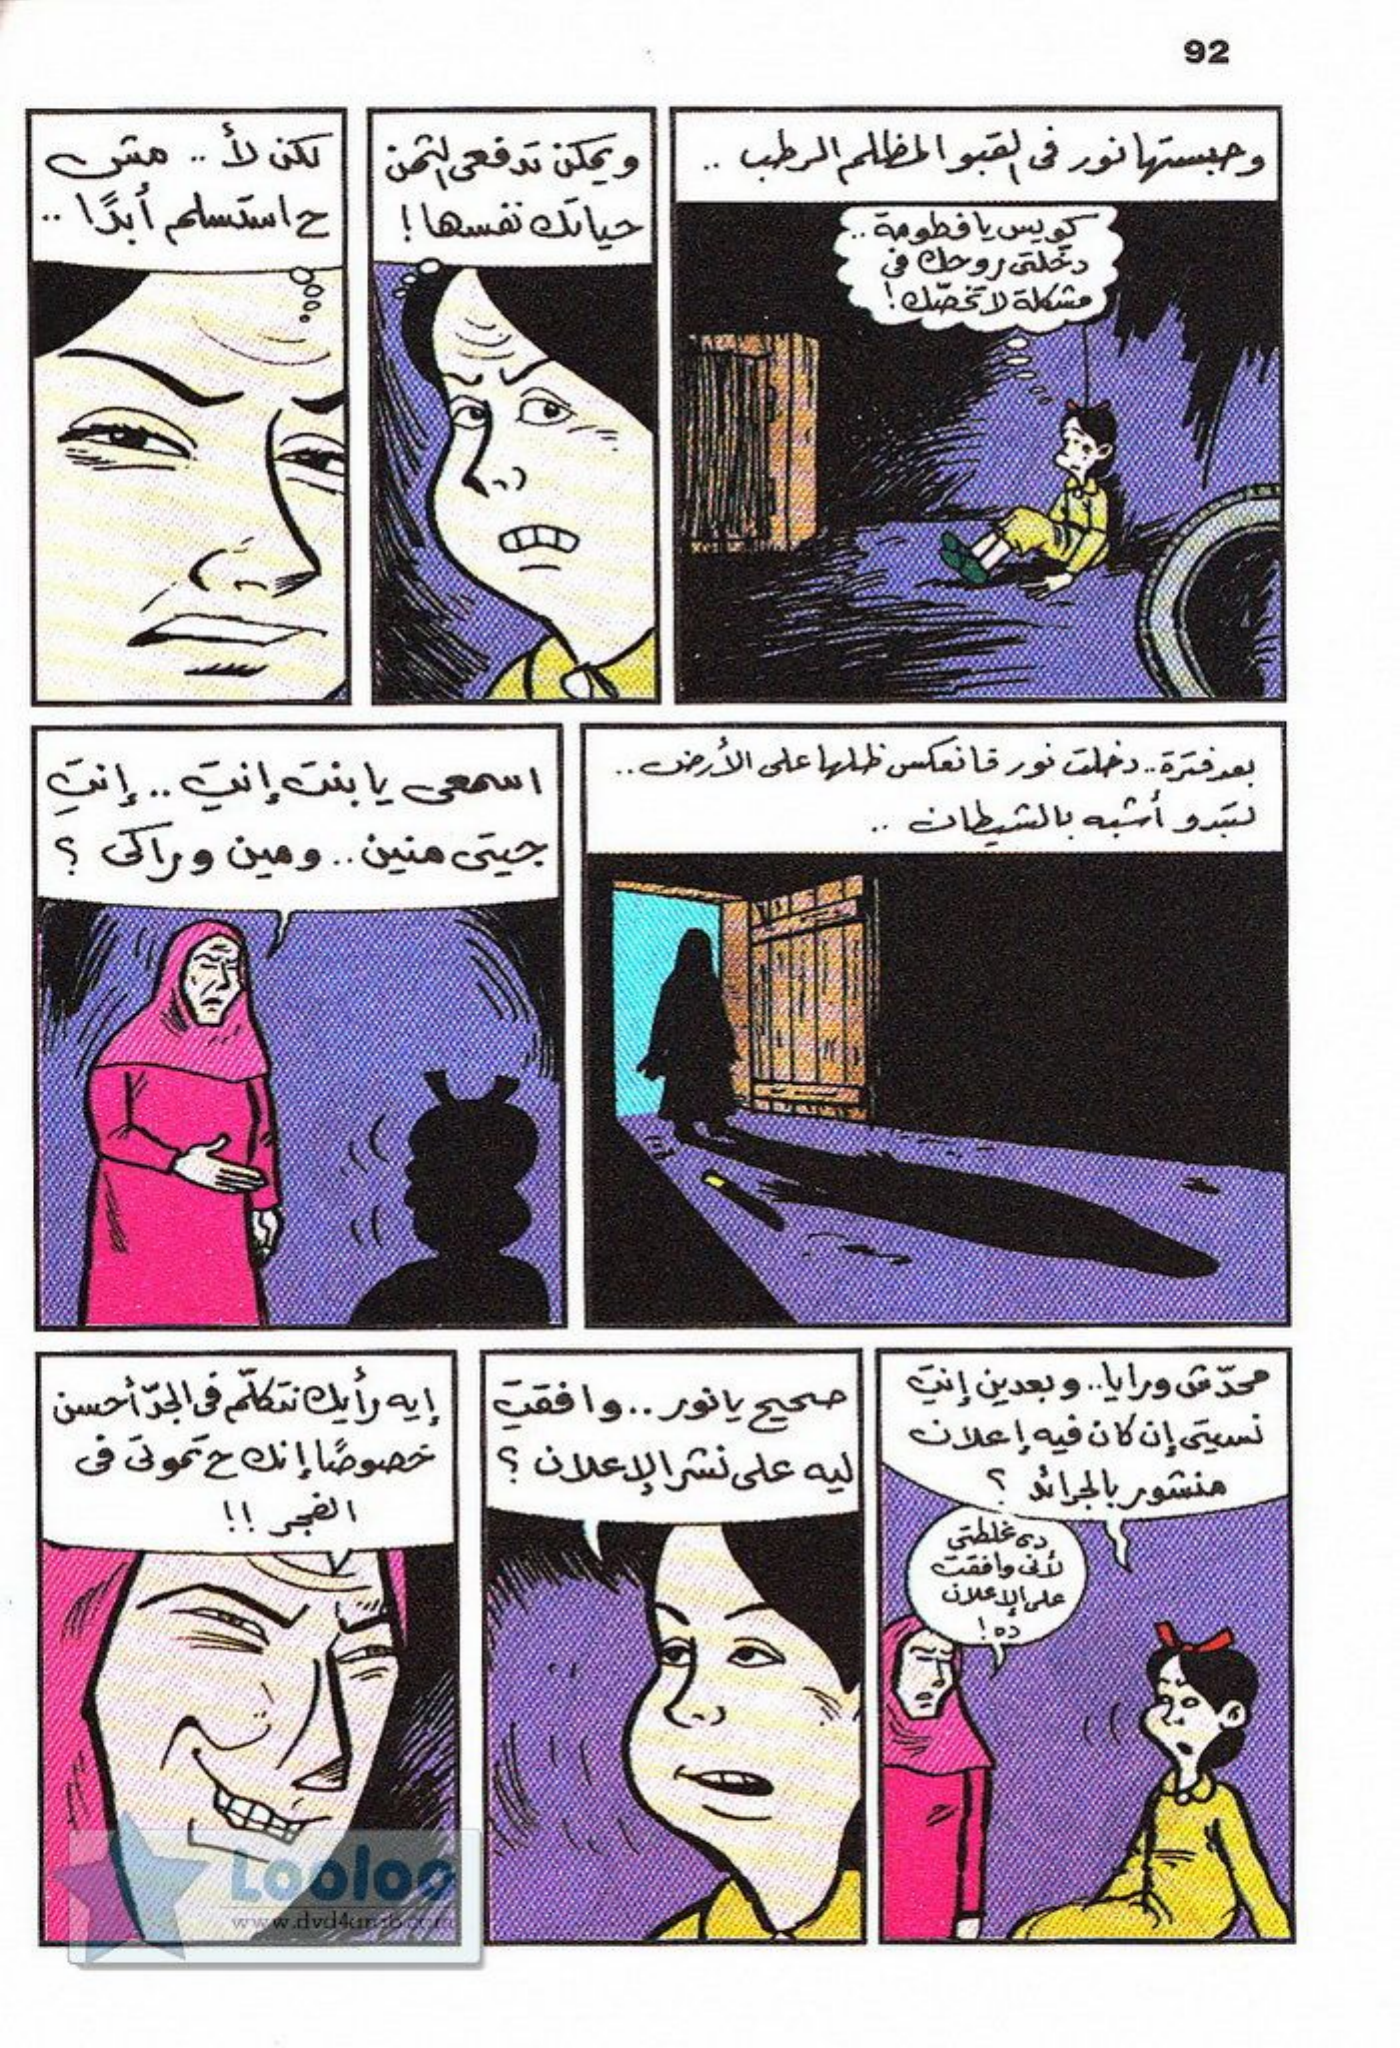 92
وحبستها نور فى القبو المظلم الرطب ..
كويس يا فطومة ..
دخلتى روحك فى
مشكلة لا تخصّك !
ويمكن تدفعى الثمن
حياتك نفسها !
لكن لأ .. مش
ح استسلم أبدًا ..
بعد فترة .. دخلت نور فانعكس ظلها على الأرض ..
لتبدو أشبه بالشيطان ..
اسمعى يا بنت إنتِ .. إنتِ
جيتى منين .. ومين وراكى ؟
محدّش ورايا .. وبعدين إنتِ
نسيتى إن كان فيه إعلان
منشور بالجرائد ؟
دى غلطتى
لأنى وافقت
على الإعلان
ده !
صحيح يا نور .. وافقتِ
ليه على نشر الإعلان ؟
إيه رأيك نتكلّم فى الجدّ أحسن
خصوصًا إنك ح تموتى فى
الفجر !!
Looloo
www.dvd4arab.com